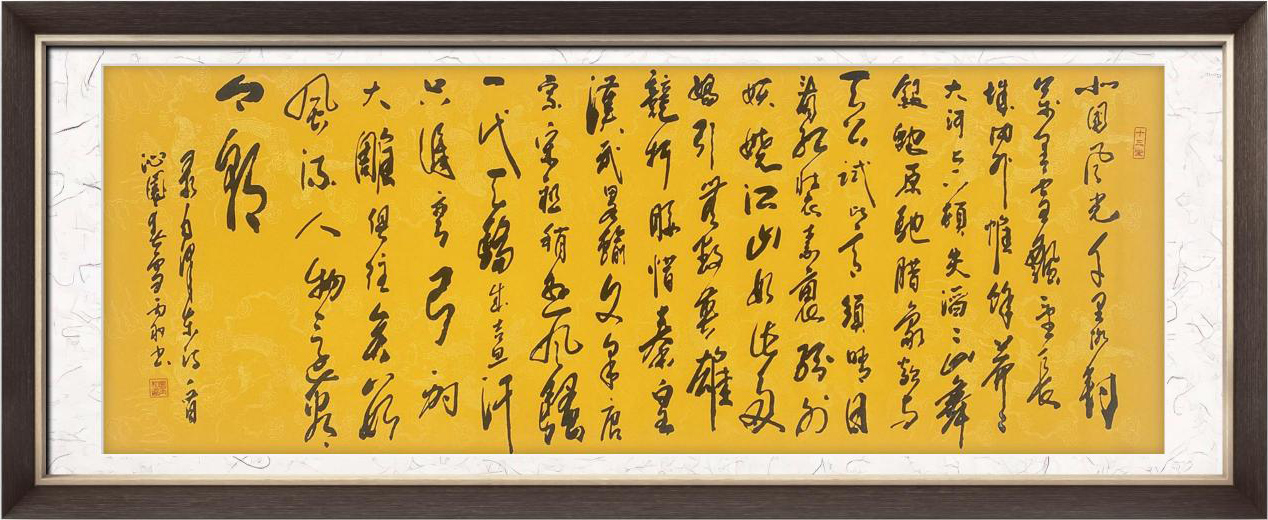 北国风光千里冰封
万里雪飘望长
城内外惟馀莽莽
大河上下顿失滔滔山舞
银蛇原驰腊象欲与
天公试比高须晴日
看红装素裹分外
妖娆江山如此多
娇引无数英雄
竞折腰惜秦皇
汉武略输文采唐
宗宋祖稍逊风骚
一代天骄成吉思汗
只识弯弓射
大雕俱往矣数
风流人物还看
今朝
录毛泽东诗一首
沁园春雪